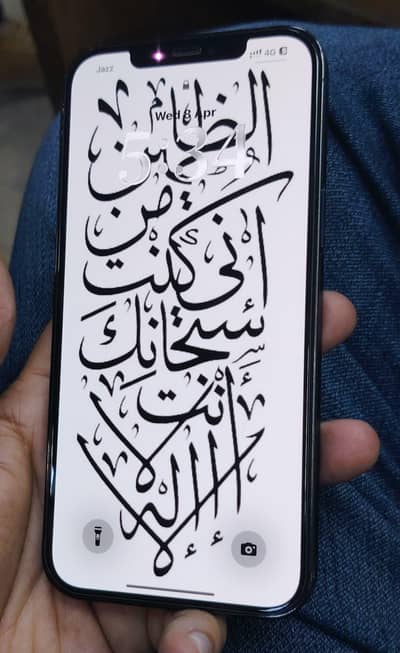 Jazz
4G
Wed 8 Apr
5:34
لا إله إلا
أنت
سبحانك
انى كنت
من
الظالمين